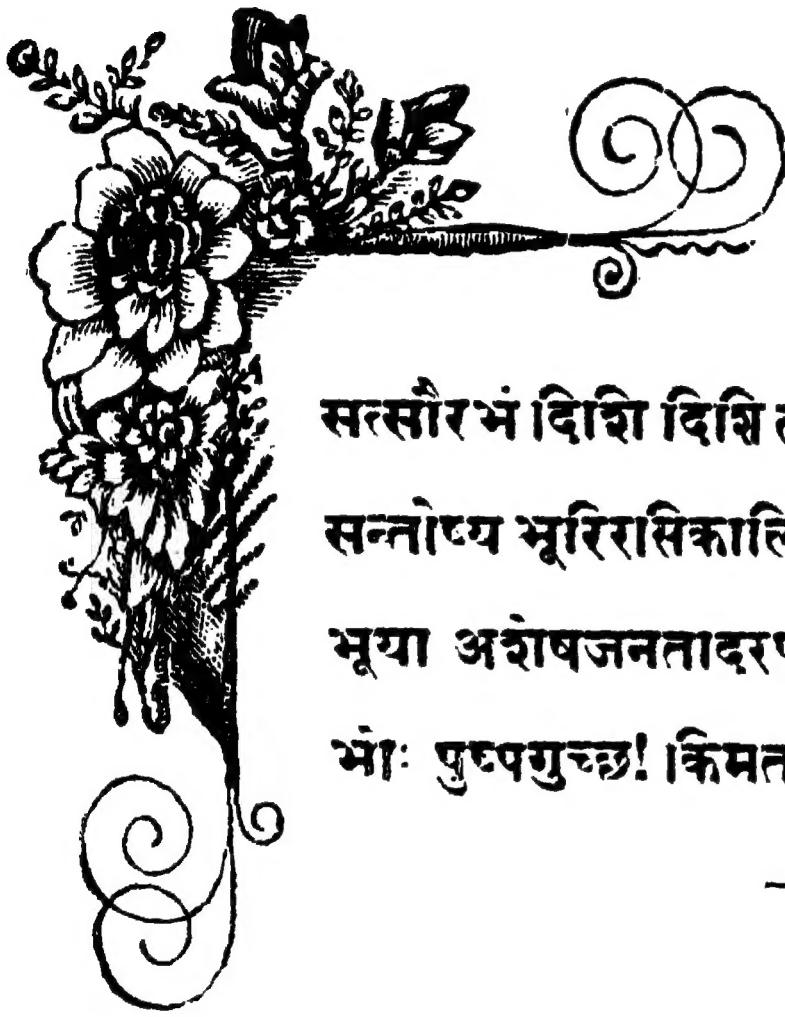 सत्सौरभं दिशि दिशि
सन्तोष्य भूरिरसिकालि
भूया अशेषजनतादर
भोः पुष्पगुच्छ! किमत